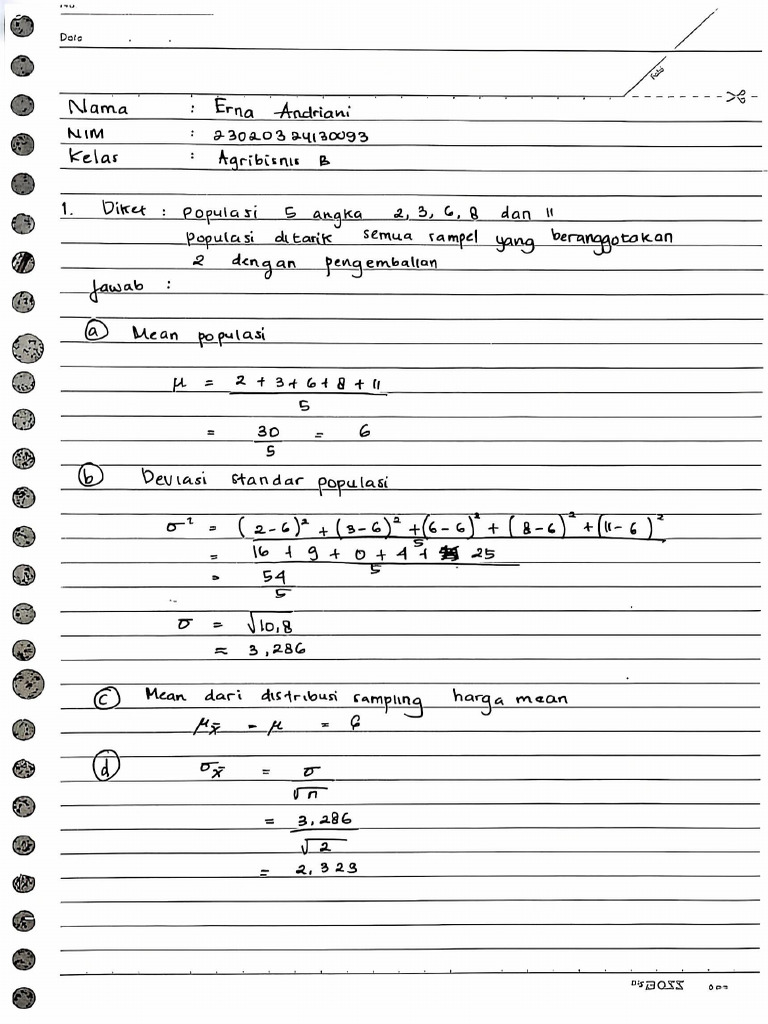 No
Date . .
Nama : Erna Andriani
NIM : 23020324130093
Kelas : Agribisnis B
1. Diket : populasi 5 angka 2, 3, 6, 8 dan 11
populasi ditarik semua sampel yang beranggotakan
2 dengan pengembalian
Jawab :
(a) Mean populasi
μ = 2 + 3 + 6 + 8 + 11
5
= 30 = 6
5
(b) Deviasi standar populasi
σ² = (2-6)² + (3-6)² + (6-6)² + (8-6)² + (11-6)²
5
= 16 + 9 + 0 + 4 + 25
5
= 54
5
σ = √10,8
≈ 3,286
(c) Mean dari distribusi sampling harga mean
μx̄ = μ = 6
(d) σx̄ = σ
√n
= 3,286
√2
= 2,323